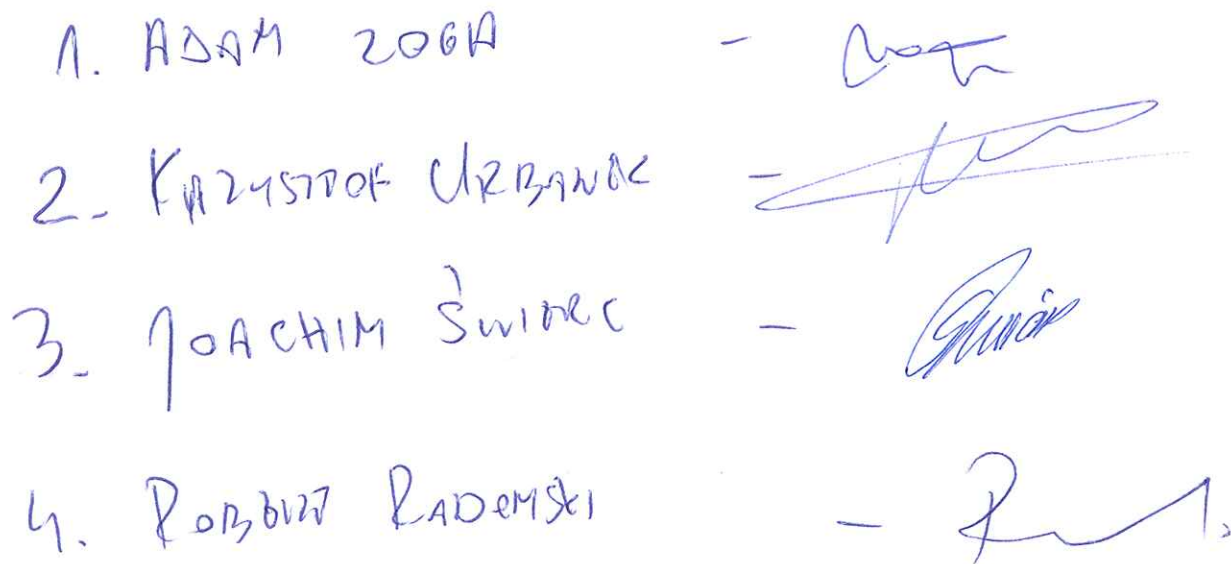 1. ADAM ZOGA -
2. KRZYSZTOF URBANEK -
3. JOACHIM ŚWIERC -
4. ROBERT RADOMSKI -